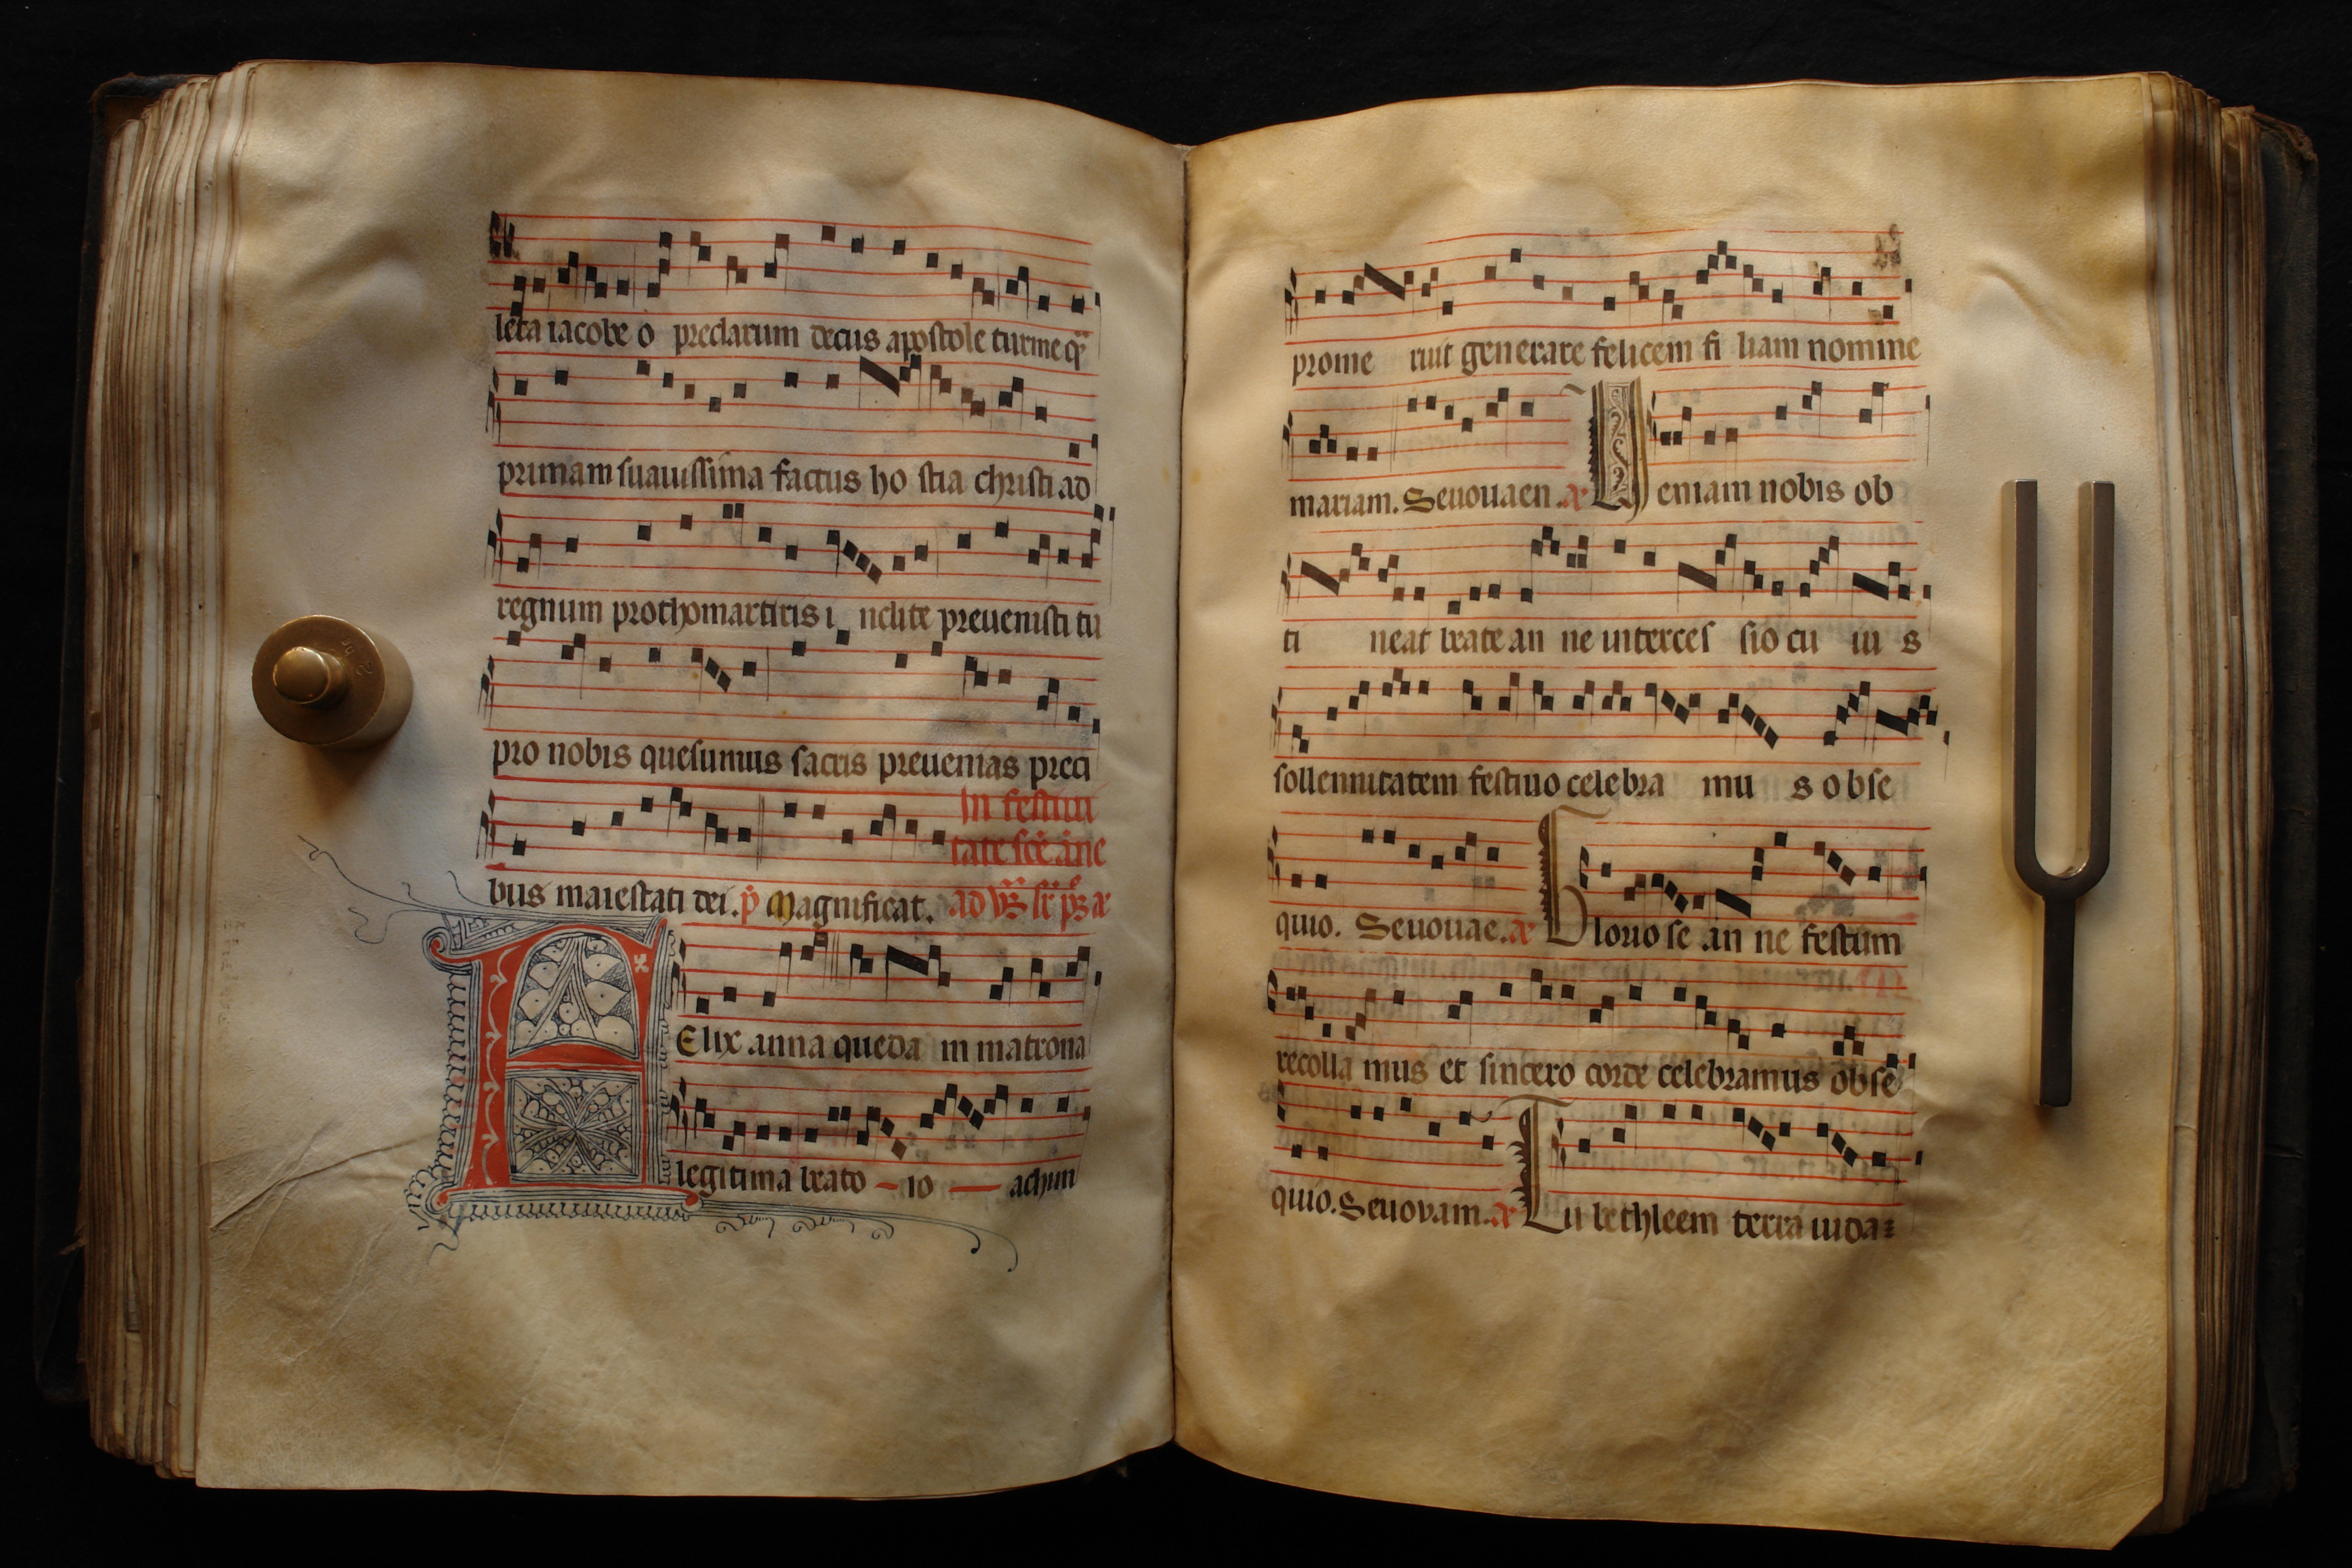 leta iacobe o preclarum decus apostole turmeq̄
primam suauissima factus ho stia christi ad
regnum prothomartiris i nclite preuenisti tu
pro nobis quesumus sacris preuenias preci
In festiui
tate scē āne
bus maiestati dei. p̄ Magnificat. ad
Elix anna queda m matrona
legitima beato – io — achim
prome ruit generare felicem fi liam nomine
mariam. Seuouaen. Ueniam nobis ob
ti neat beate an ne interces sio cu iu s
sollennitatem festiuo celebra mu s obse
quio. Seuouae. Gloriose an ne festum
recolla mus et sincero corde celebramus obse
quio. Seuovam. Tu bethleem terra iuda